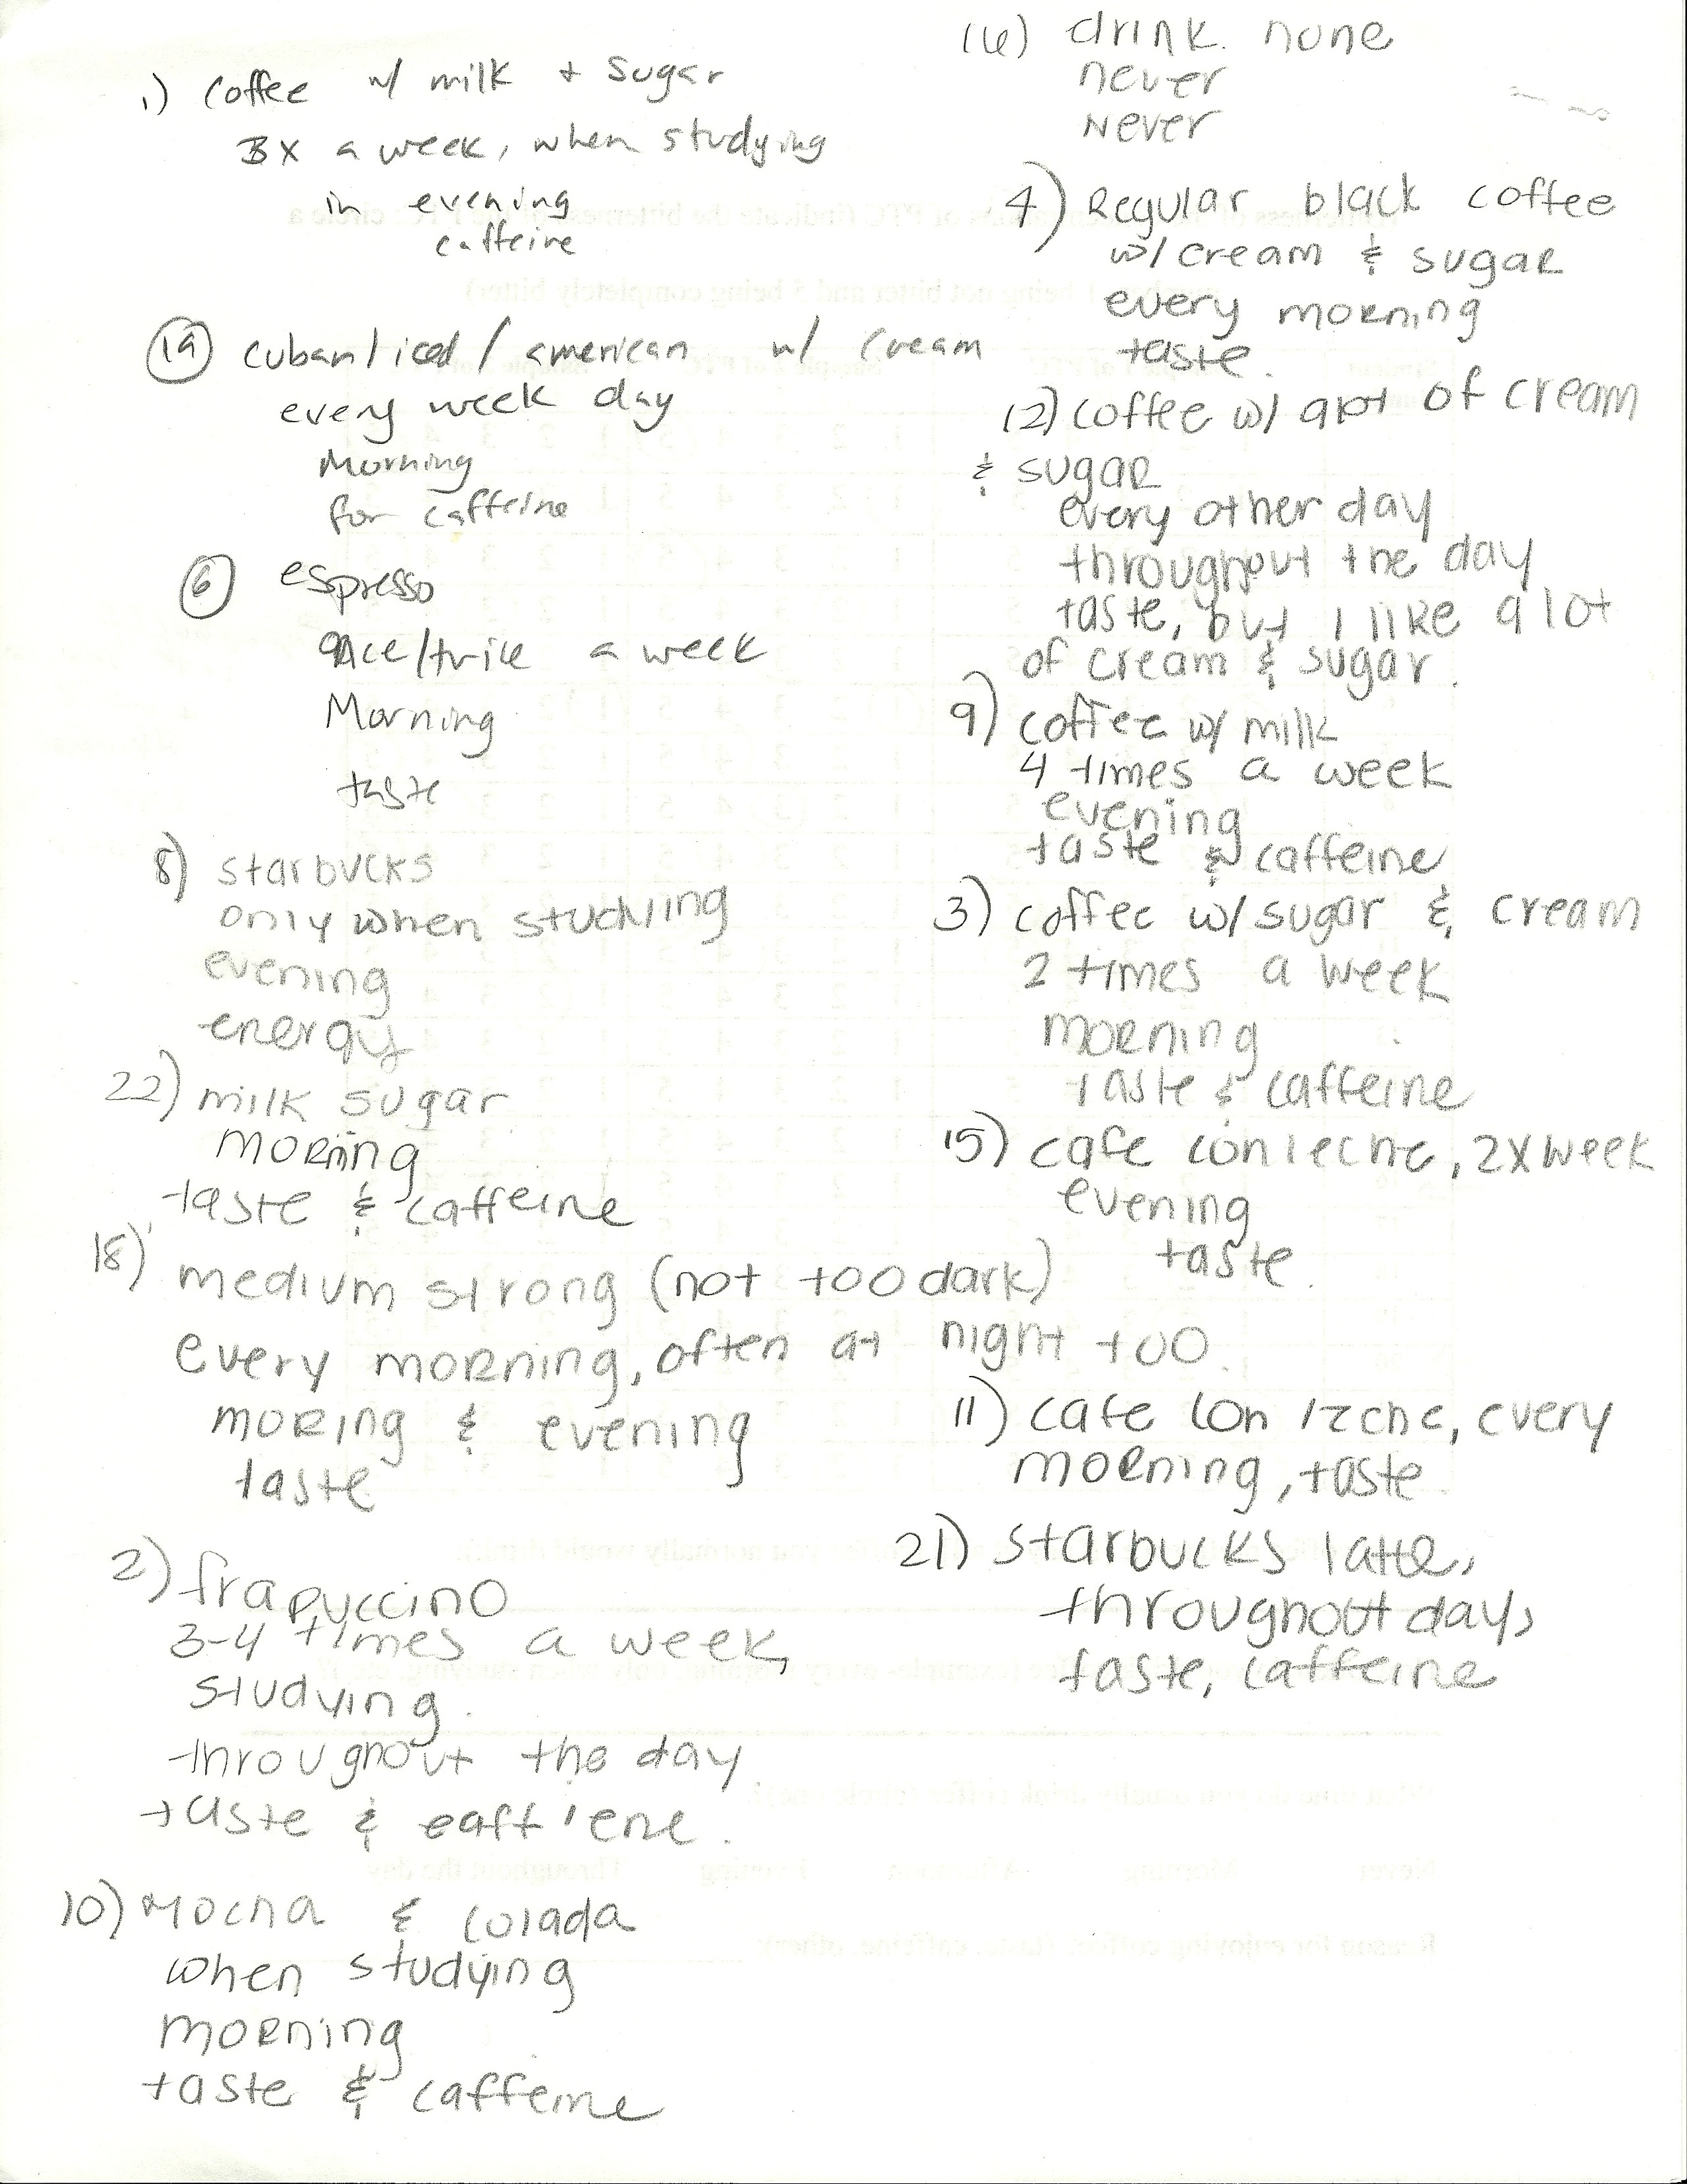 1) Coffee w/ milk + sugar
3x a week, when studying
in evening
caffeine
19 cuban/iced/american w/ cream
every week day
Morning
for caffeine
6 espresso
once/twice a week
Morning
taste
8) starbucks
only when studying
evening
energy
22) milk sugar
morning
taste & caffeine
18) medium strong (not too dark)
every morning, often at night too.
moring & evening
taste
2) frapuccino
3-4 times a week,
studying.
throughout the day
taste & caffiene.
10) Mocha & colada
when studying
morning
taste & caffeine
16) drink none
never
Never
4) Regular black coffee
w/ cream & sugar
every morning
taste.
12) coffee w/ alot of cream
& sugar
every other day
throughout the day
taste, but I like a lot
of cream & sugar.
9) coffee w/ milk
4 times a week
evening
taste & caffeine
3) coffee w/ sugar & cream
2 times a week
morning
taste & caffeine
15) cafe con leche, 2x week
evening
taste.
11) cafe con leche, every
morning, taste
21) starbucks latte,
throughout day,
taste, caffeine